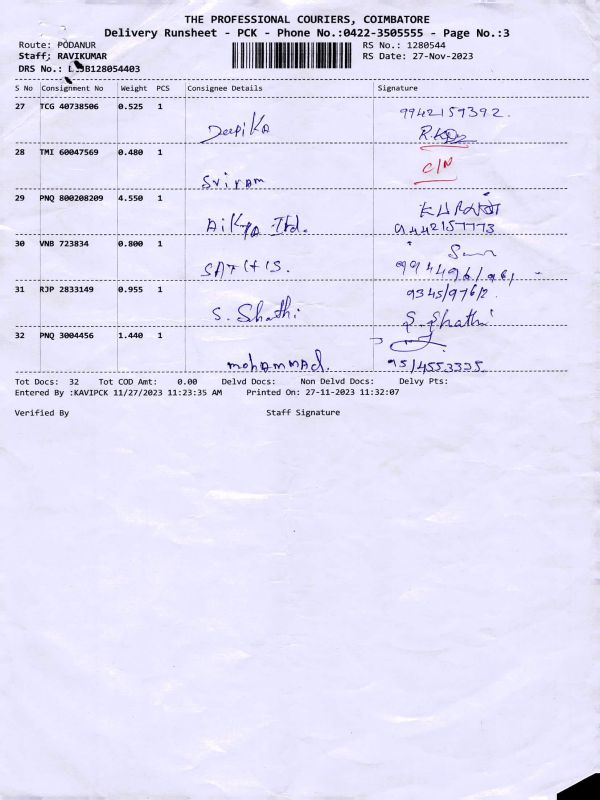 THE PROFESSIONAL COURIERS, COIMBATORE
Delivery Runsheet - PCK - Phone No.:0422-3505555 - Page No.:3
Route: PODANUR RS No.: 1280544
Staff: RAVIKUMAR RS Date: 27-Nov-2023
DRS No.:
S No Consignment No Weight PCS Consignee Details Signature
27 TCG 40738506 0.525 1 9942159392.
Deepika
28 TMI 60047569 0.480 1 C/N
Sriram
29 PNQ 800208209 4.550 1
Aikya Ltd. 9442157773
30 VNB 723834 0.800 1
SATHIS.
31 RJP 2833149 0.955 1
S. Shathi S. Shathi
32 PNQ 3004456 1.440 1
mohAmmAd. 9514553335
Tot Docs: 32 Tot COD Amt: 0.00 Delvd Docs: Non Delvd Docs: Delvy Pts:
Entered By :KAVIPCK 11/27/2023 11:23:35 AM Printed On: 27-11-2023 11:32:07
Verified By Staff Signature